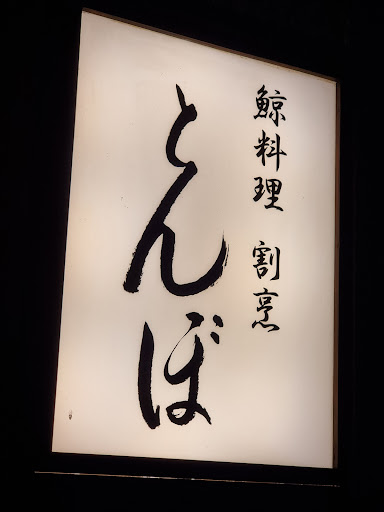 鯨料理 割烹
とんぼ